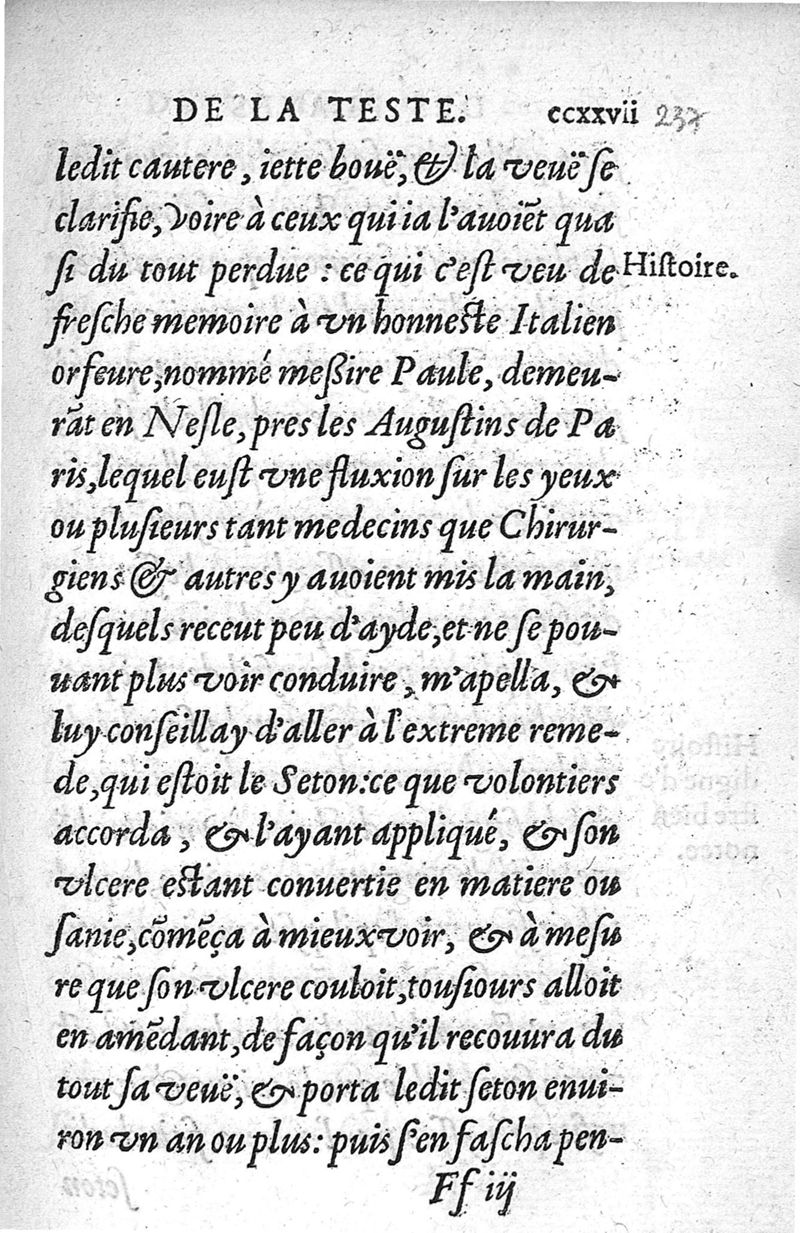 DE LA TESTE. ccxxvii 237
ledit cautere, iette bouë, & la veuë se
clarifie, voire à ceux qui ia l'auoiẽt qua
si du tout perdue : ce qui c'est veu de Histoire.
fresche memoire à vn honneste Italien
orfeure, nommé meßire Paule, demeu-
rãt en Nesle, pres les Augustins de Pa
ris, lequel eust vne fluxion sur les yeux
ou plusieurs tant medecins que Chirur-
giens & autres y auoient mis la main,
desquels receut peu d'ayde, et ne se pou-
uant plus voir conduire, m'apella, &
luy conseillay d'aller à l'extreme reme-
de, qui estoit le Seton: ce que volontiers
accorda, & l'ayant appliqué, & son
vlcere estant conuertie en matiere ou
sanie, cõmẽça à mieux voir, & à mesu
re que son vlcere couloit, tousiours alloit
en amẽdant, de façon qu'il recouura du
tout sa veuë, & porta ledit seton enui-
ron vn an ou plus: puis s'en fascha pen-
Ff iij